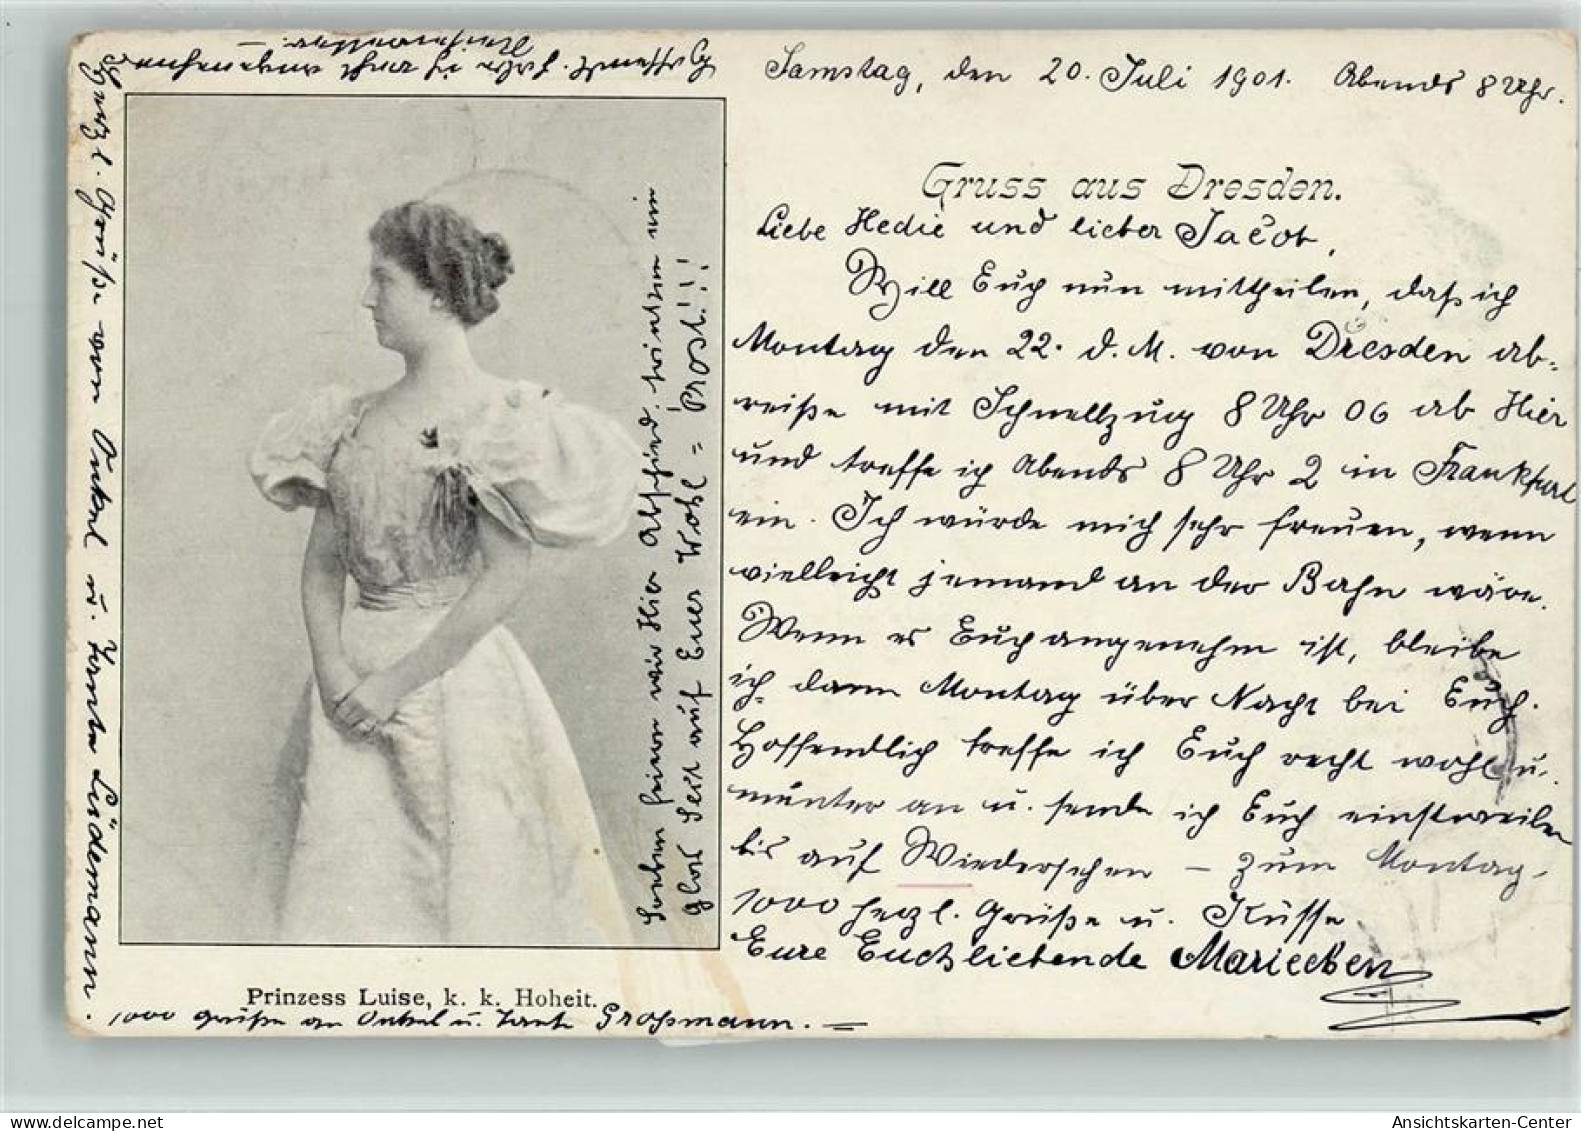 Samstag, den 20. Juli 1901. Abends 8 Uhr.
Gruss aus Dresden.
Liebe Hedie und lieber Jacob,
Will Euch nun mittheilen, daß ich
Montag den 22. d. M. von Dresden ab-
reiße mit Schnellzug 8 Uhr 06 ab Hier
und treffe ich Abends 8 Uhr 2 in Frankfurt
ein. Ich würde mich sehr freuen, wenn
vielleicht jemand an der Bahn wäre.
Wenn es Euch angenehm ist, bleibe
ich dann Montag über Nacht bei Euch.
Hoffendlich treffe ich Euch recht wohl u.
munter an u. sende ich Euch einstweilen
bis auf Wiedersehen – zum Montag,
1000 herzl. Grüße u. Küsse
Eure Euchliebende Mariechen
Soeben feiern wir Hier Abschied, trinken ein
Glas Sekt auf Euer Wohl = Prost!!!
Prinzess Luise, k. k. Hoheit.
1000 Grüße an Onkel u. Tante Großmann.
Herzl. Grüße von Onkel u. Tante Lüdemann.
Hoffentl. habe ich recht angenehmes
Reisewetter.
Ansichtskarten-Center
delcampe.net